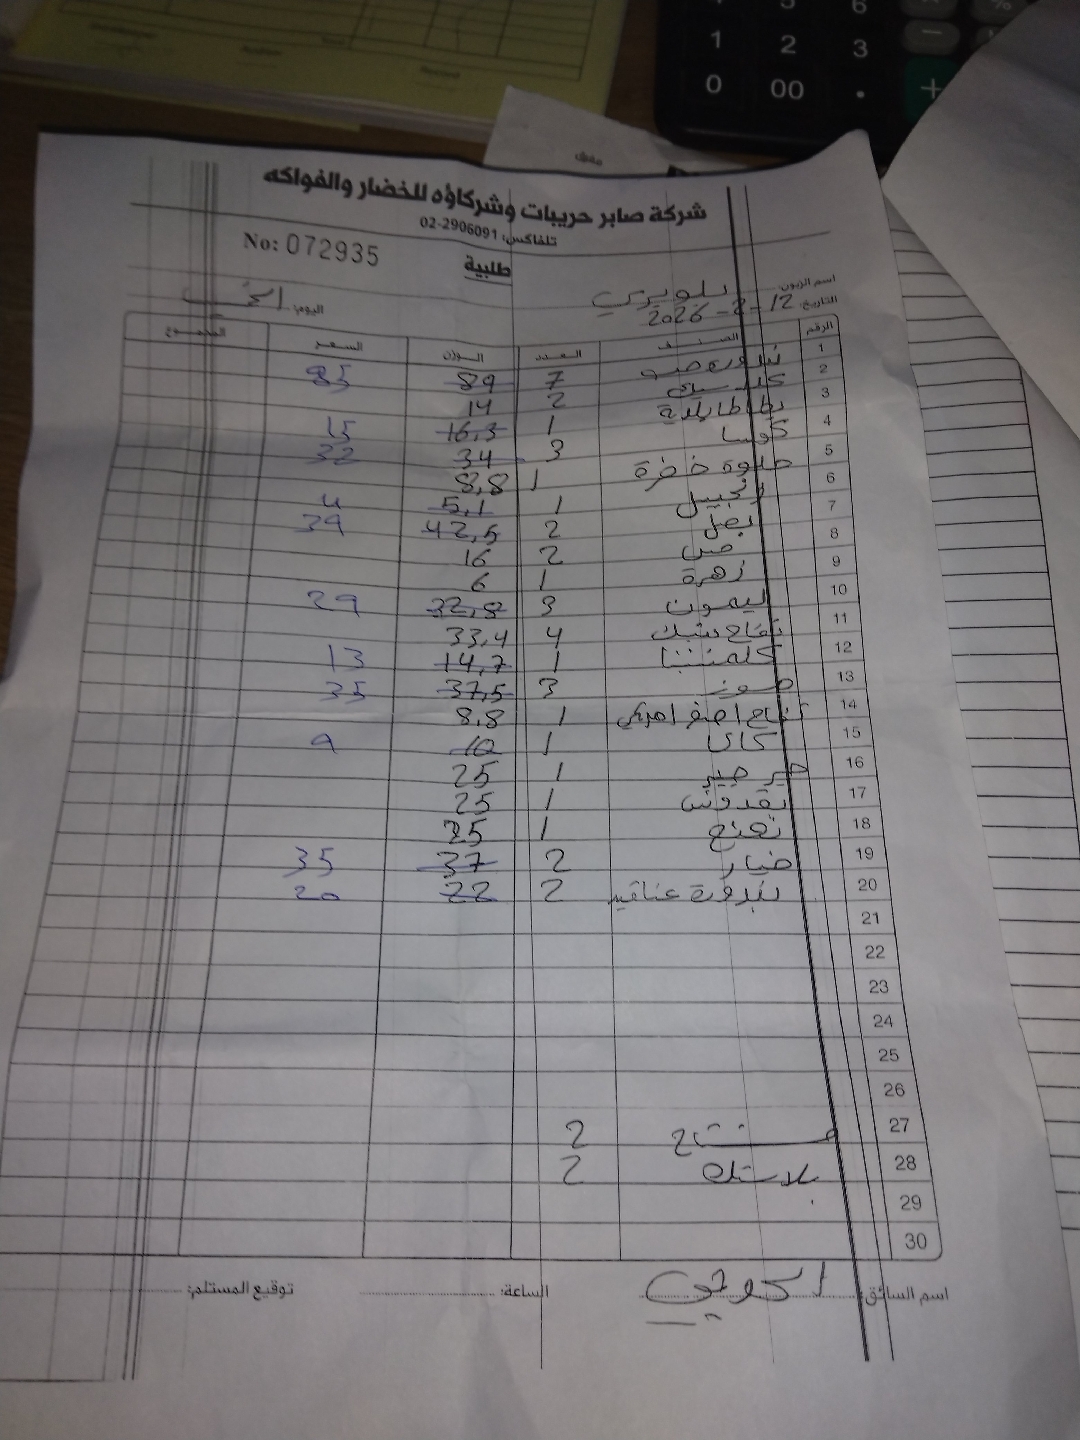 1 2 3
0 00 .
شركة صابر حريبات وشركاؤه للخضار والفواكه
تلفاكس: 02-2906091
No: 072935
طلبية
اسم الزبون:
التاريخ: 12-2-2026
اليوم:
الرقم الصنف العدد الوزن السعر المجموع
1 7 89 85
2 2 14
3 بطاطا بلدية 1 16,3 15
4 كوسا 3 34 32
5 حلوة خضرة 1 8,8
6 زنجبيل 1 5,1 4
7 بصل 2 42,5 39
8 خس 2 16
9 زهرة 1 6
10 ليمون 3 32,8 29
11 تفاح 4 33,4
12 كلمنتينا 1 14,7 13
13 موز 3 37,5 35
14 تفاح اصفر امريكي 1 8,8
15 كاكا 1 10 9
16 جرجير 1 25
17 بقدونس 1 25
18 نعنع 1 25
19 خيار 2 37 35
20 بندورة عناقيد 2 22 20
21
22
23
24
25
26
27 2
28 بلاستك 2
29
30
اسم السائق: الساعة: توقيع المستلم: